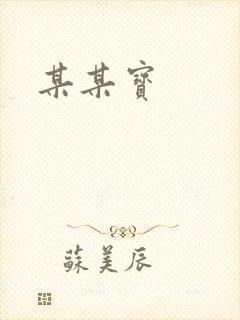 某某寶
蘇美辰